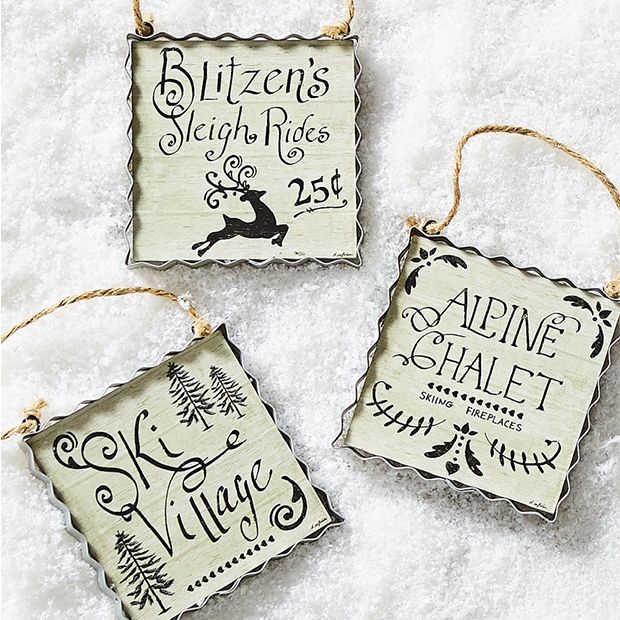 BLitzen's
Sleigh Rides
25¢
ALPINE
CHALET
SKIING FIREPLACES
Ski
Village